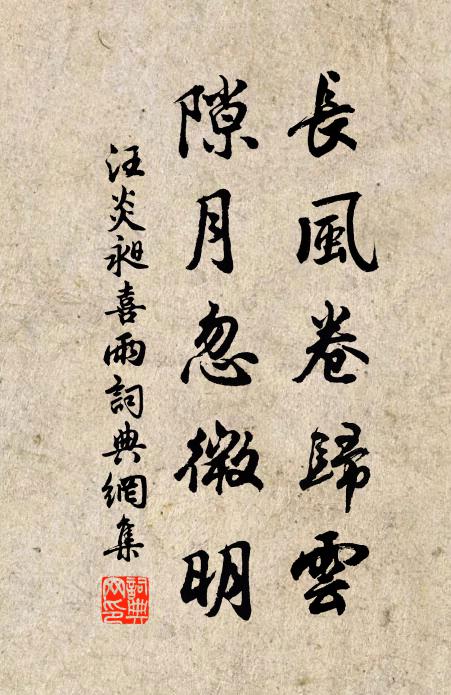 長風卷歸雲
隙月忽微明
汪炎昶喜雨詞典網集
詞典網印